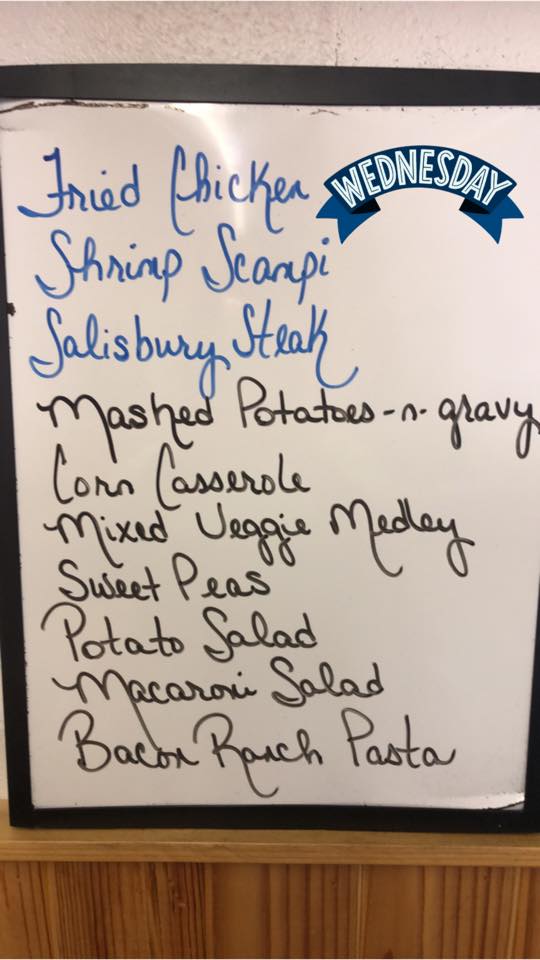 Fried Chicken
WEDNESDAY
Shrimp Scampi
Salisbury Steak
Mashed Potatoes-n-gravy
Corn Casserole
Mixed Veggie Medley
Sweet Peas
Potato Salad
Macaroni Salad
Bacon Ranch Pasta